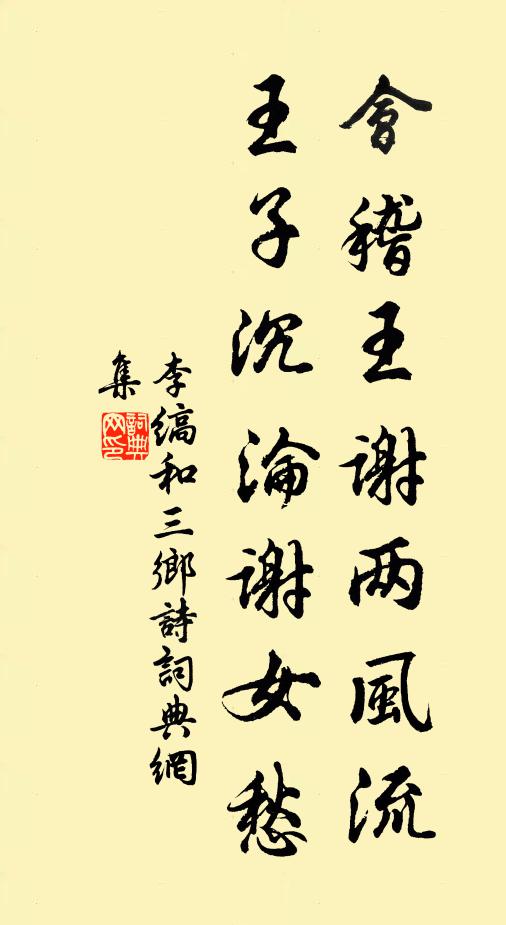 會稽王謝两風流
王子沉淪謝女愁
李縞和三鄉詩詞典網
集
詞典
网印